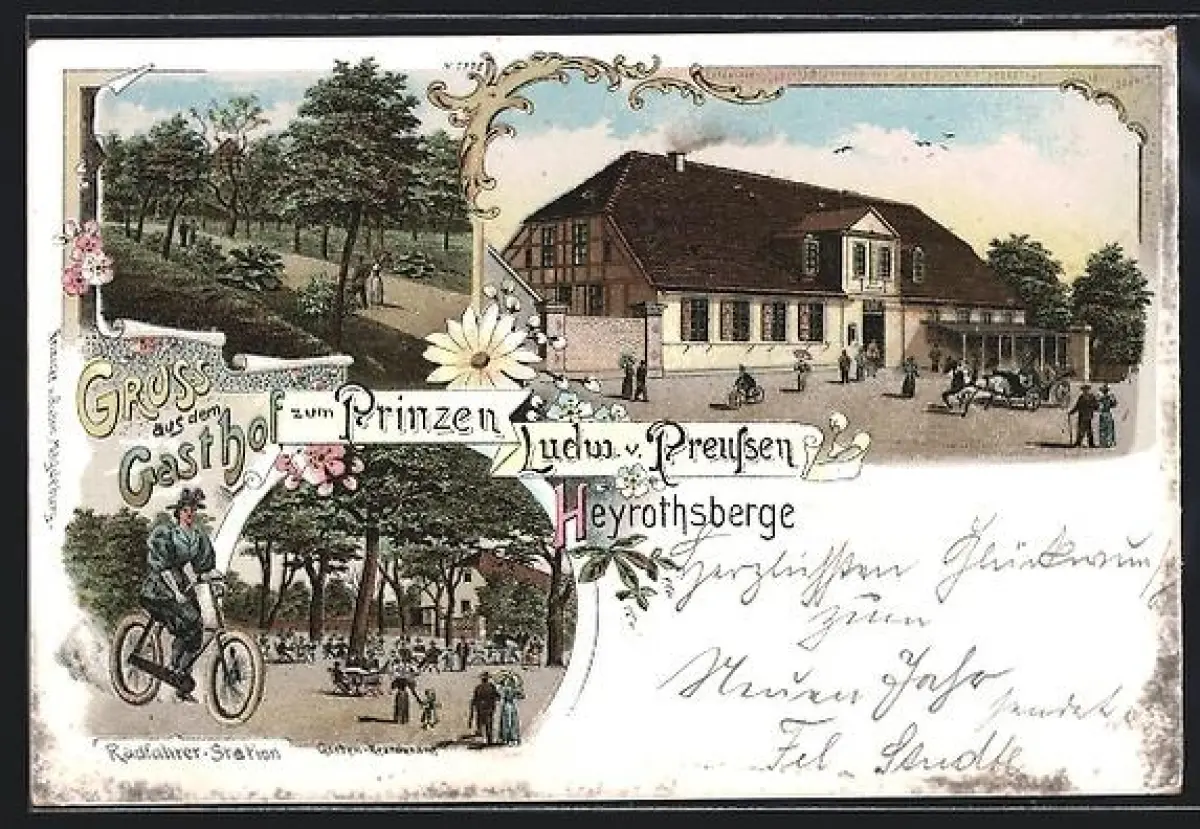 Gruss
aus dem
Gasthof zum Prinzen
Ludw. v. Preußen
Heyrothsberge
Herzlichsten Glückwun
zum
Neuen Jahr
sendet
Radfahrer-Station
Garten-Restaurant